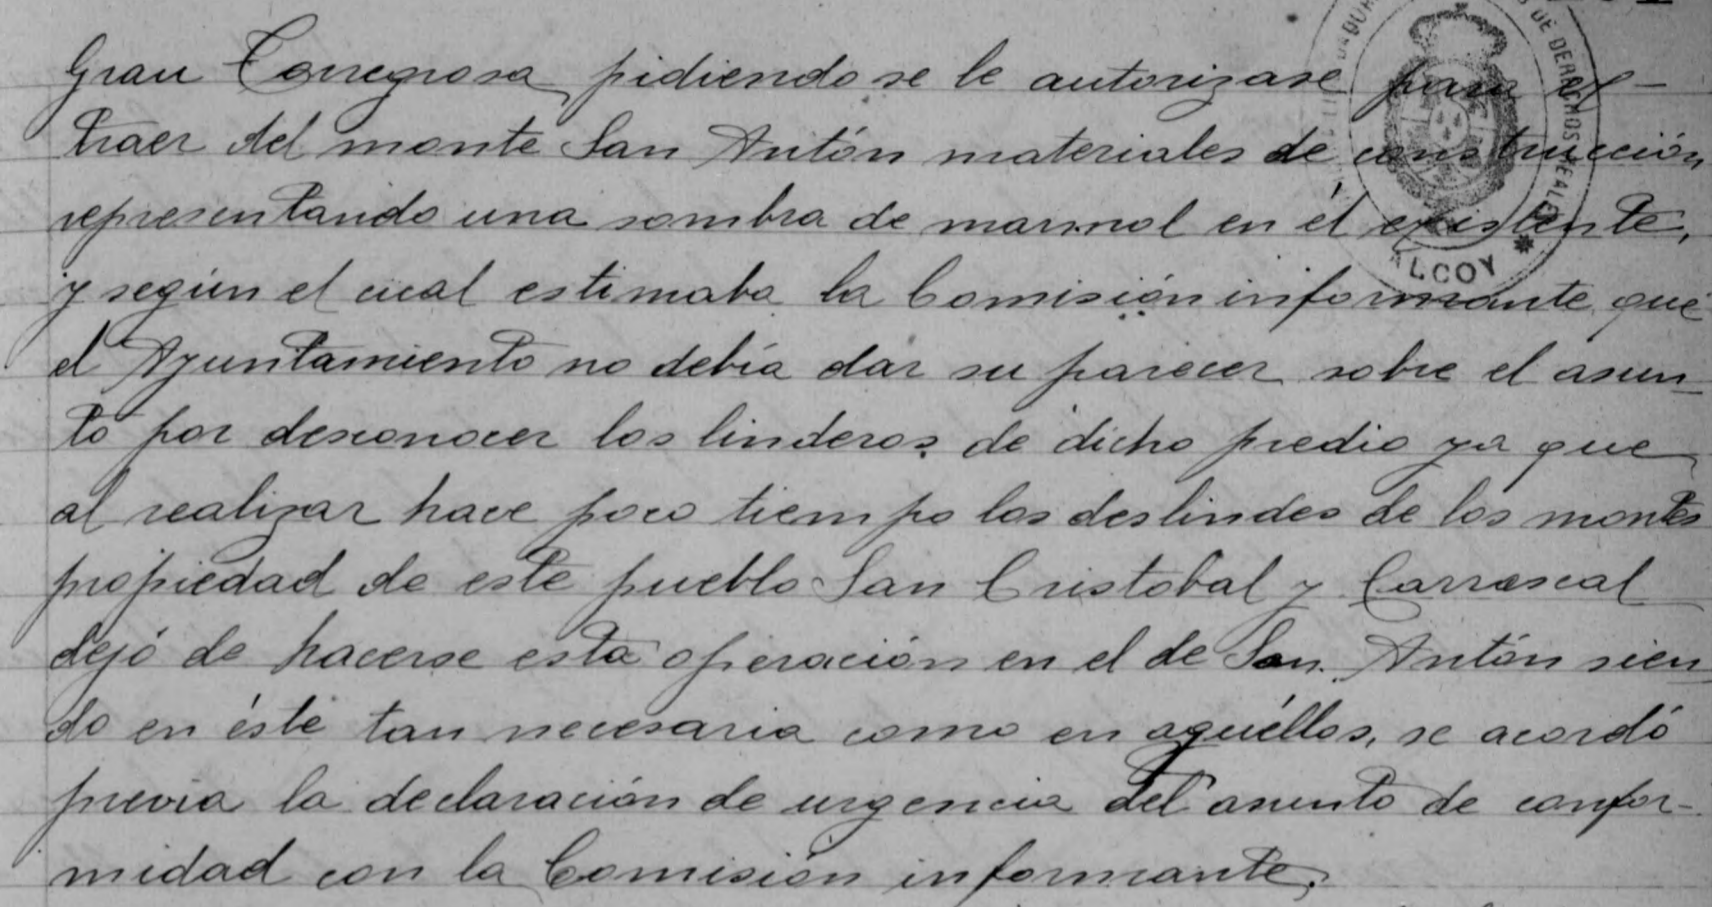 Grau Torregrosa, pidiendo se le autorizase para ex-
traer del monte San Antón materiales de construcción
representando una sombra de marmol en él existente,
y según el cual estimaba la Comisión informante que
el Ayuntamiento no debía dar su parecer sobre el asun-
to por desconocer los linderos de dicho predio ya que
al realizar hace poco tiempo los deslindes de los montes
propiedad de este pueblo San Cristobal y Carrascal
dejó de hacerse esta operación en el de San Antón sien-
do en éste tan necesaria como en aquéllos, se acordó
previa la declaración de urgencia del asunto de confor-
midad con la Comisión informante.
DE DERECHOS REALES
ALCOY